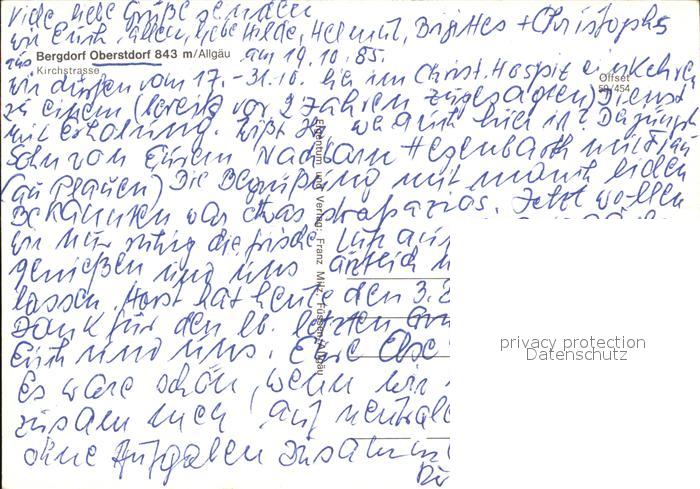 Viele liebe Grüße senden
wir Euch allen, liebe Hilde, Helmut, Brigittes + Christophs
aus Bergdorf Oberstdorf 843 m/Allgäu am 19.10.85.
Kirchstrasse
Offset
59/454
Wir dürfen vom 17.-31.10. hier im Christ. Hospiz einkehren
zu einem (bereits vor 2 Jahren zugesagten) Dienst
mit Erholung. Wißt Ihr wer auch hier ist? Der jüngste
Sohn von Eurem Nachbarn Hegenbarth mit Frau
(aus Plauen) Die Begrüßung mit manch lieben
Bekannten war etwas strapaziös. Jetzt wollen
wir nur ruhig die frische Luft
genießen und uns ärztlich
lassen. Horst hat heute den 3.
Dank für den lb. letzten
Euch und uns. Eure Else
Es wäre schön, wenn wir
zusammen auf
ohne Aufgaben
Eigentum und Verlag: Franz Milz, Füssen/Allgäu
privacy protection
Datenschutz